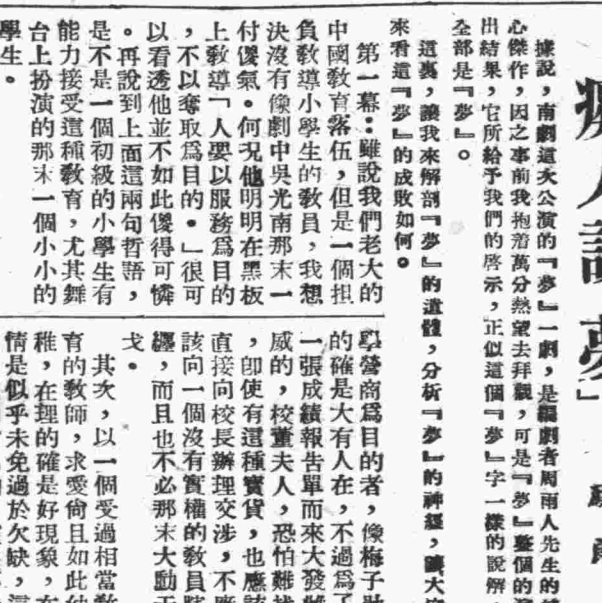 痴人說夢」
據說，南劇這次公演的『夢』一劇，是編劇者周雨人先生的
心傑作，因之事前我抱着萬分熱望去拜觀，可是『夢』整個的
出結果，它所給予我們的啓示，正似這個『夢』字一樣的說解
全部是『夢』。
這裏，讓我來解剖『夢』的遺體，分析『夢』的神經，讓大
來看這『夢』的成敗如何。
第一幕：雖說我們老大的
中國敎育落伍，但是一個担
負敎導小學生的敎員，我想
決沒有像劇中吳光南那末一
付儍氣。何況他明明在黑板
上敎導「人要以服務爲目的
，不以奪取爲目的。」很可
以看透他並不如此儍得可憐
。再說到上面這兩句哲語，
是不是一個初級的小學生有
能力接受這種敎育，尤其舞
台上扮演的那末一個小小的
學生。
學營商爲目的者，像梅子
的確是大有人在，不過爲了
一張成績報吿單而來大發
威的，校董夫人，恐怕難
，卽使有這種寶貨，也應該
直接向校長辦理交涉，不應
該向一個沒有實權的敎員
纏，而且也不必那末大動干
戈。
其次，以一個受過相當敎
育的敎師，求愛尙且如此
稚，在理的確是好現象，在
情是似乎未免過於欠缺，這